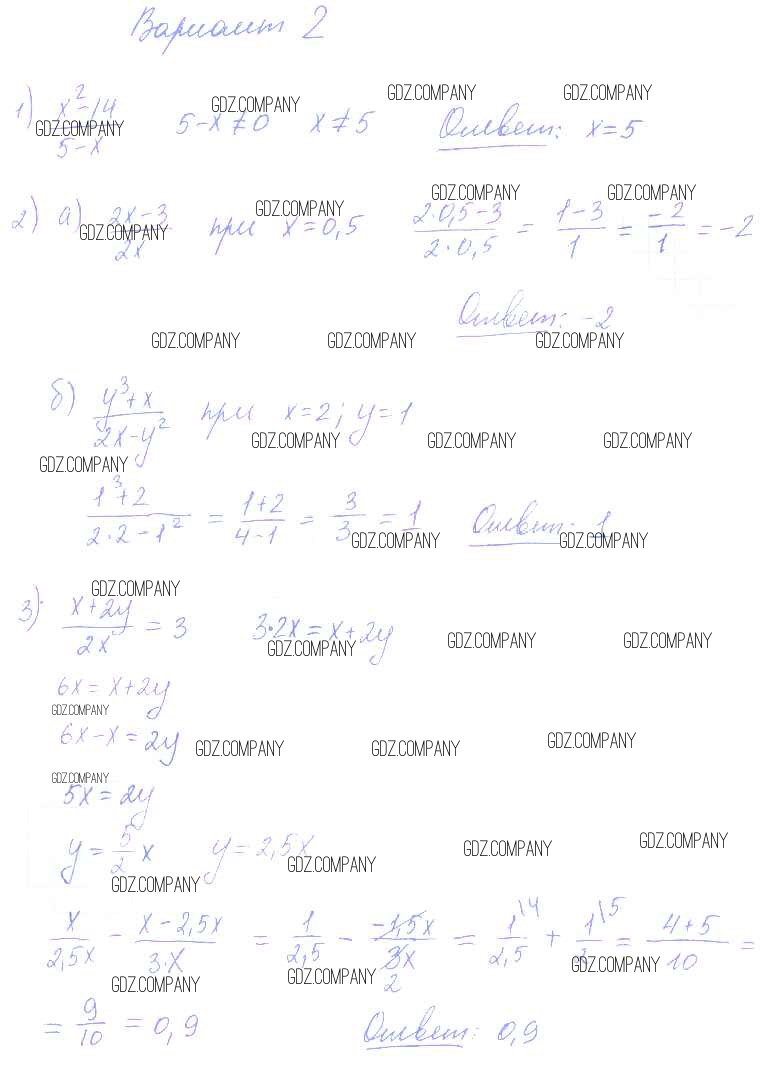 Вариант 2
1) x²-14 / 5-x   5-x≠0   x≠5   Ответ: x=5
GDZ.COMPANY GDZ.COMPANY GDZ.COMPANY GDZ.COMPANY
2) а) 2x-3 / 2x при x=0,5   2·0,5-3 / 2·0,5 = 1-3 / 1 = -2 / 1 = -2
GDZ.COMPANY GDZ.COMPANY GDZ.COMPANY GDZ.COMPANY
Ответ: -2
GDZ.COMPANY GDZ.COMPANY GDZ.COMPANY
б) y³+x / 2x-y² при x=2; y=1
GDZ.COMPANY GDZ.COMPANY GDZ.COMPANY GDZ.COMPANY
1³+2 / 2·2-1² = 1+2 / 4-1 = 3 / 3 = 1   Ответ: 1
GDZ.COMPANY GDZ.COMPANY
GDZ.COMPANY
3) x+2y / 2x = 3   3·2x=x+2y
GDZ.COMPANY GDZ.COMPANY GDZ.COMPANY
6x=x+2y
GDZ.COMPANY
6x-x=2y
GDZ.COMPANY GDZ.COMPANY GDZ.COMPANY
GDZ.COMPANY
5x=2y
y = 5 / 2 x   y=2,5x
GDZ.COMPANY GDZ.COMPANY GDZ.COMPANY GDZ.COMPANY
x / 2,5x - x-2,5x / 3·x = 1 / 2,5 - -1,5x / 3x 2 = 1\4 / 2,5 + 1\5 / 2 = 4+5 / 10 =
GDZ.COMPANY GDZ.COMPANY GDZ.COMPANY
= 9 / 10 = 0,9   Ответ: 0,9